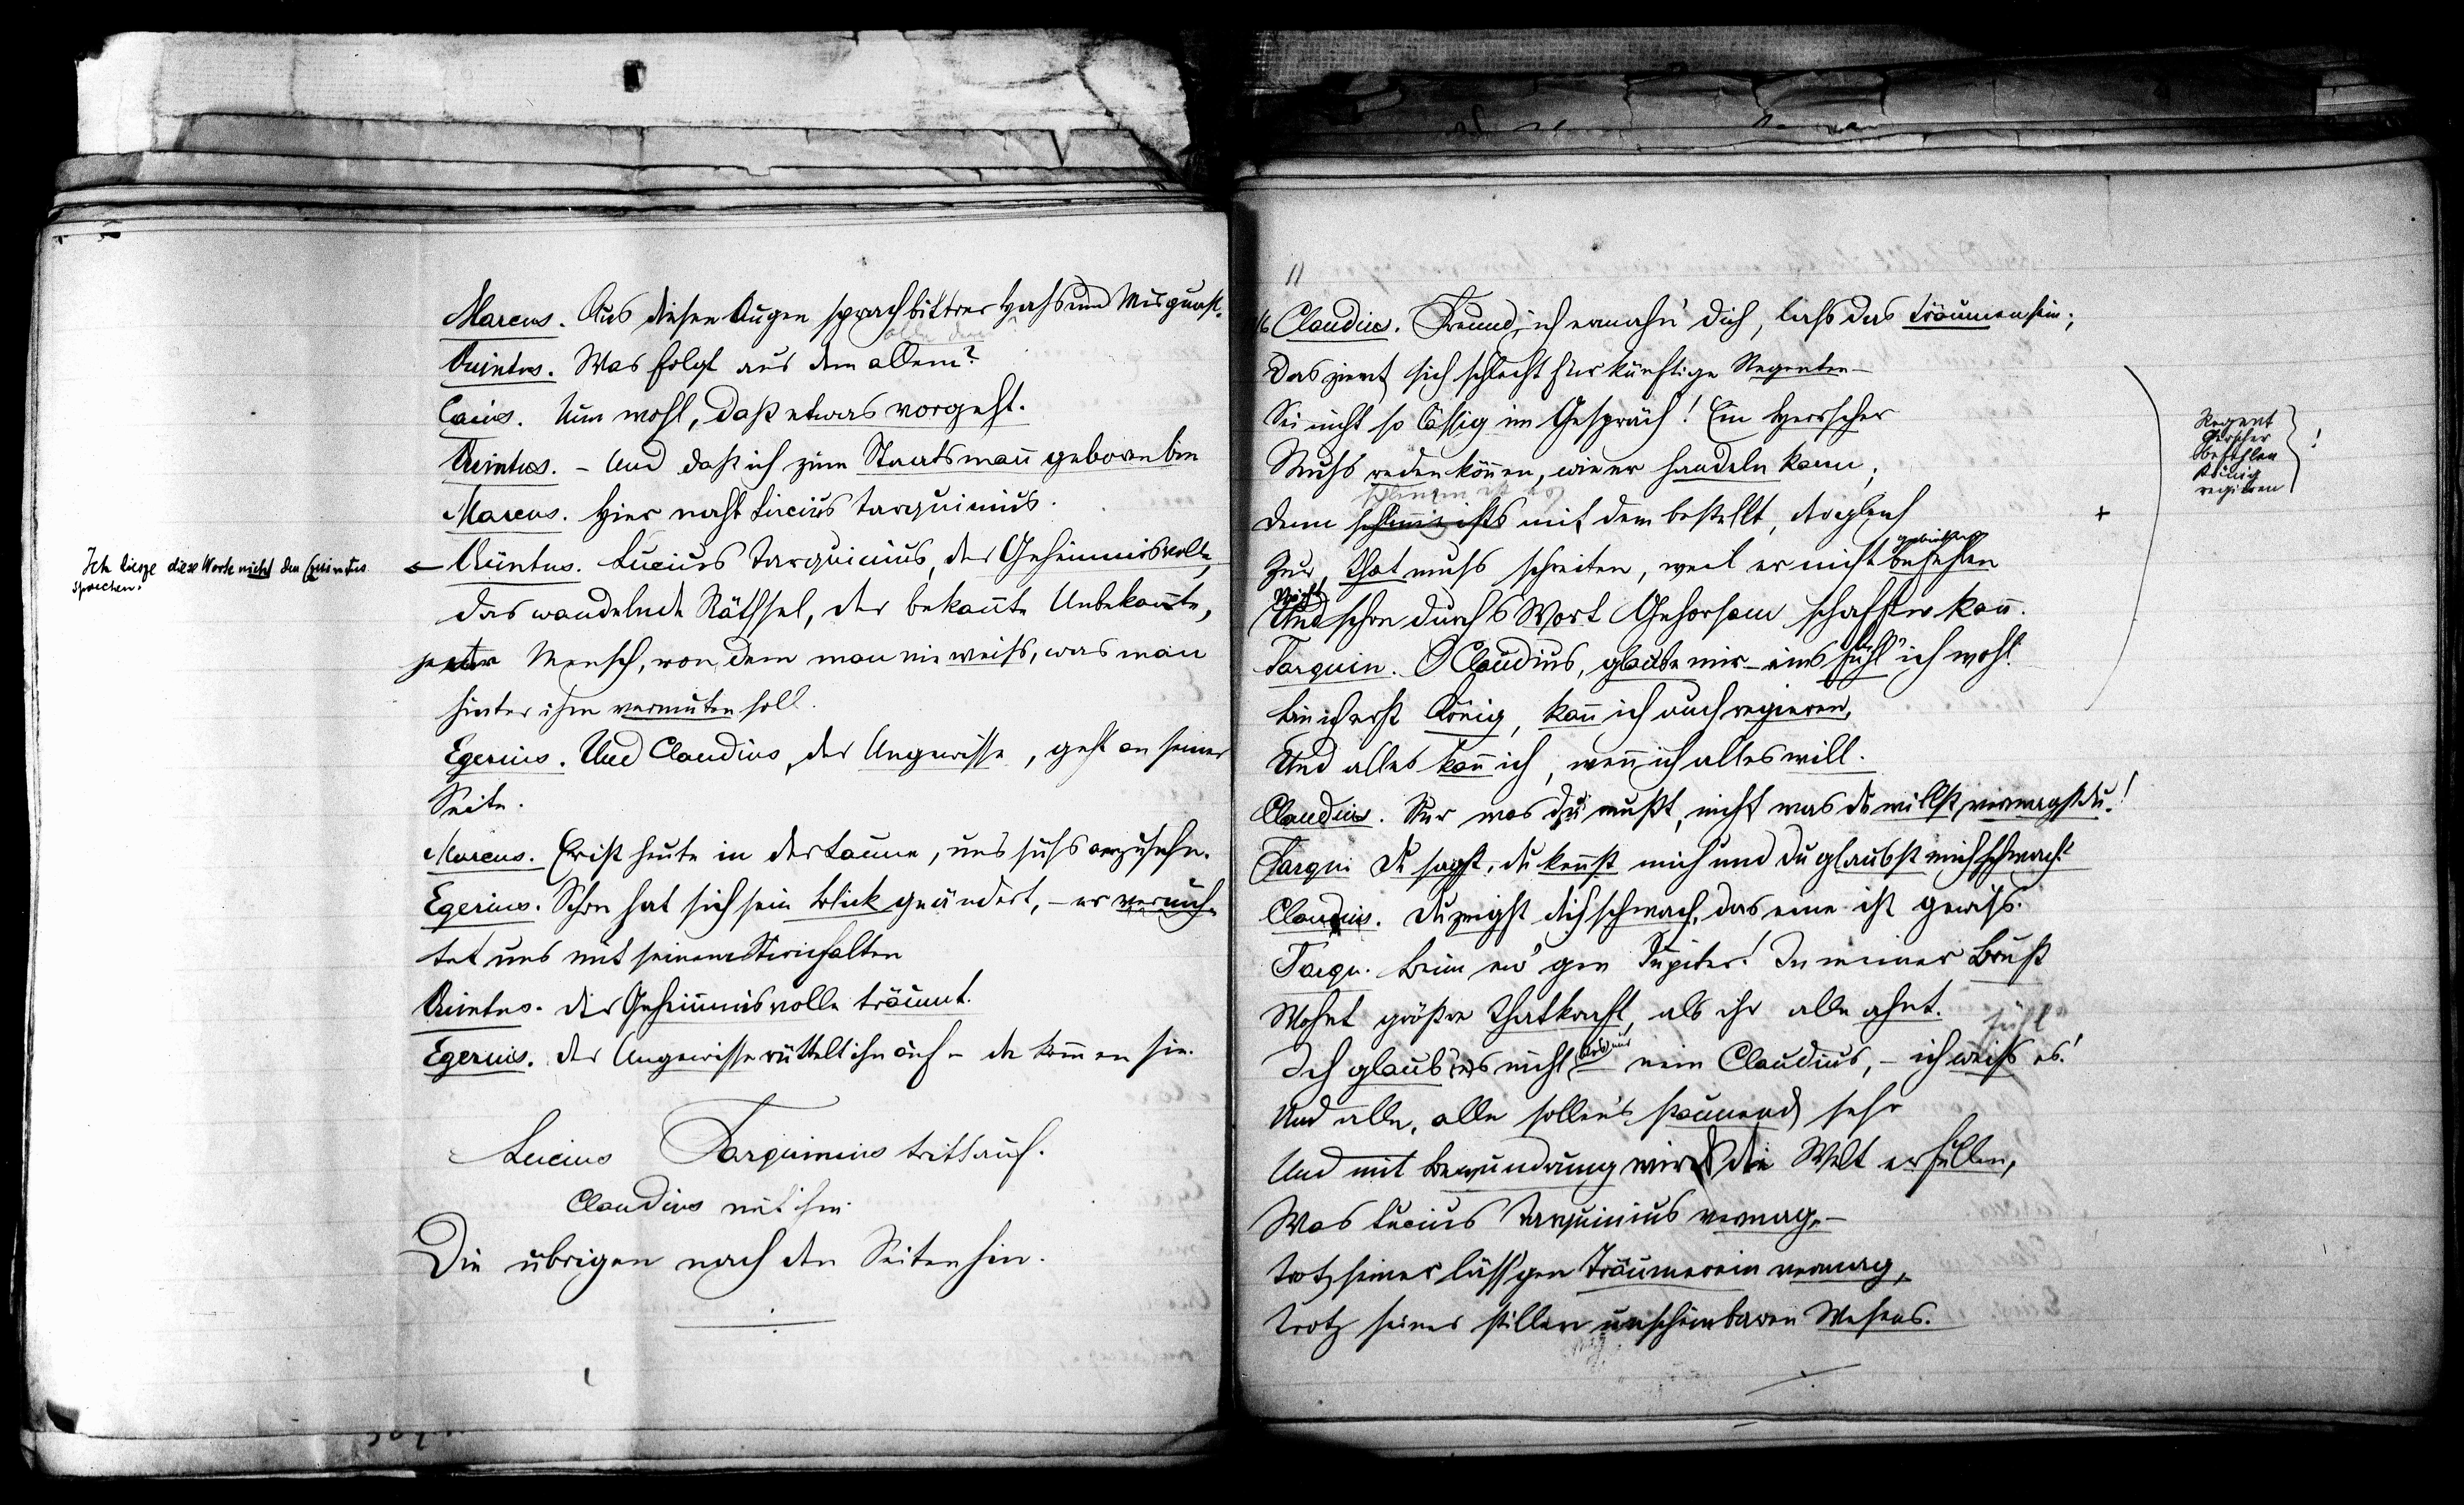 Marcus. Aus diesen Augen sprach bittrer Hass und Misgunst.
Quintus. Was folgt aus dem allem?
Caius. Nun wohl, daß etwas vorgeht.
Quintus. – Und daß ich zum Staatsmañ geboren bin
Marcus. Hier naht Lucius Tarquinius.
Quintus. Lucius Tarquinius, der Geheimnisvolle,
das wandelnde Räthsel, der bekañte Unbekañte,
Mensch, von dem man nie weiss, was man
hinter ihm vermuten soll.
Egerius. Und Claudius, der Ungewisse, geht an seiner
Seite.
Marcus. Er ist heute in der Laune, uns süss anzusehn.
Egerius. Schon hat sich sein Blick geändert, – er vernich-
tet uns mit seinem Stirnfalten
Quintus. Der Geheimnisvolle träumt.
Egerius. Der Ungewisse rüttelt ihn auf – da kom̃en sie.
Lucius Tarquinius tritt auf.
Claudius mit ihm
Die übrigen nach den Seiten hin.
Ich liesse diese Worte nicht den Quintus
sprechen.
11
16 Claudius. Freund, ich ermahn' dich, lass das träumen sein;
Das ziemt sich schlecht für künftige Regenten –
Sei nicht so lässig im Gespräch! Ein Herrscher
Muss reden kön̄en, wie er handeln kann;
Denn schlimm ists mit dem bestellt, der gleich
gebieten
Zur That muss schreiten, weil er nicht befehlen
Nicht
Und schon durchs Wort Gehorsam schaffen kañ.
Tarquin. O Claudius, glaube mir – eins fühl' ich wohl
Bin ich erst König, kañ ich auch regieren,
Und alles kañ ich, weñ ich alles will.
Claudius. Nur was du mußt, nicht was du willst, vermagst du!
Tarqu. Du sagst, du keñst mich und du glaubst mich schwach?
Claudius. Du zeigst dich schwach, das eine ist gewiss.
Tarqu. Beim ew'gen Jupiter! In meiner Brust
Wohnt größre Thatkraft, als ihr alle ahnt.
fühl'
Ich glaub' es nicht nein Claudius, – ich weiss es!
Und alle, alle sollen's staunend sehn
Und mit Bewundrung wird die Welt erfüllen,
Was Lucius Tarquinius vermag, –
Trotz seiner läss'gen Träumerein vermag,
Trotz seines stillen unscheinbaren Wesens.
Regent
Herscher
befehlen
König
regieren
!
+